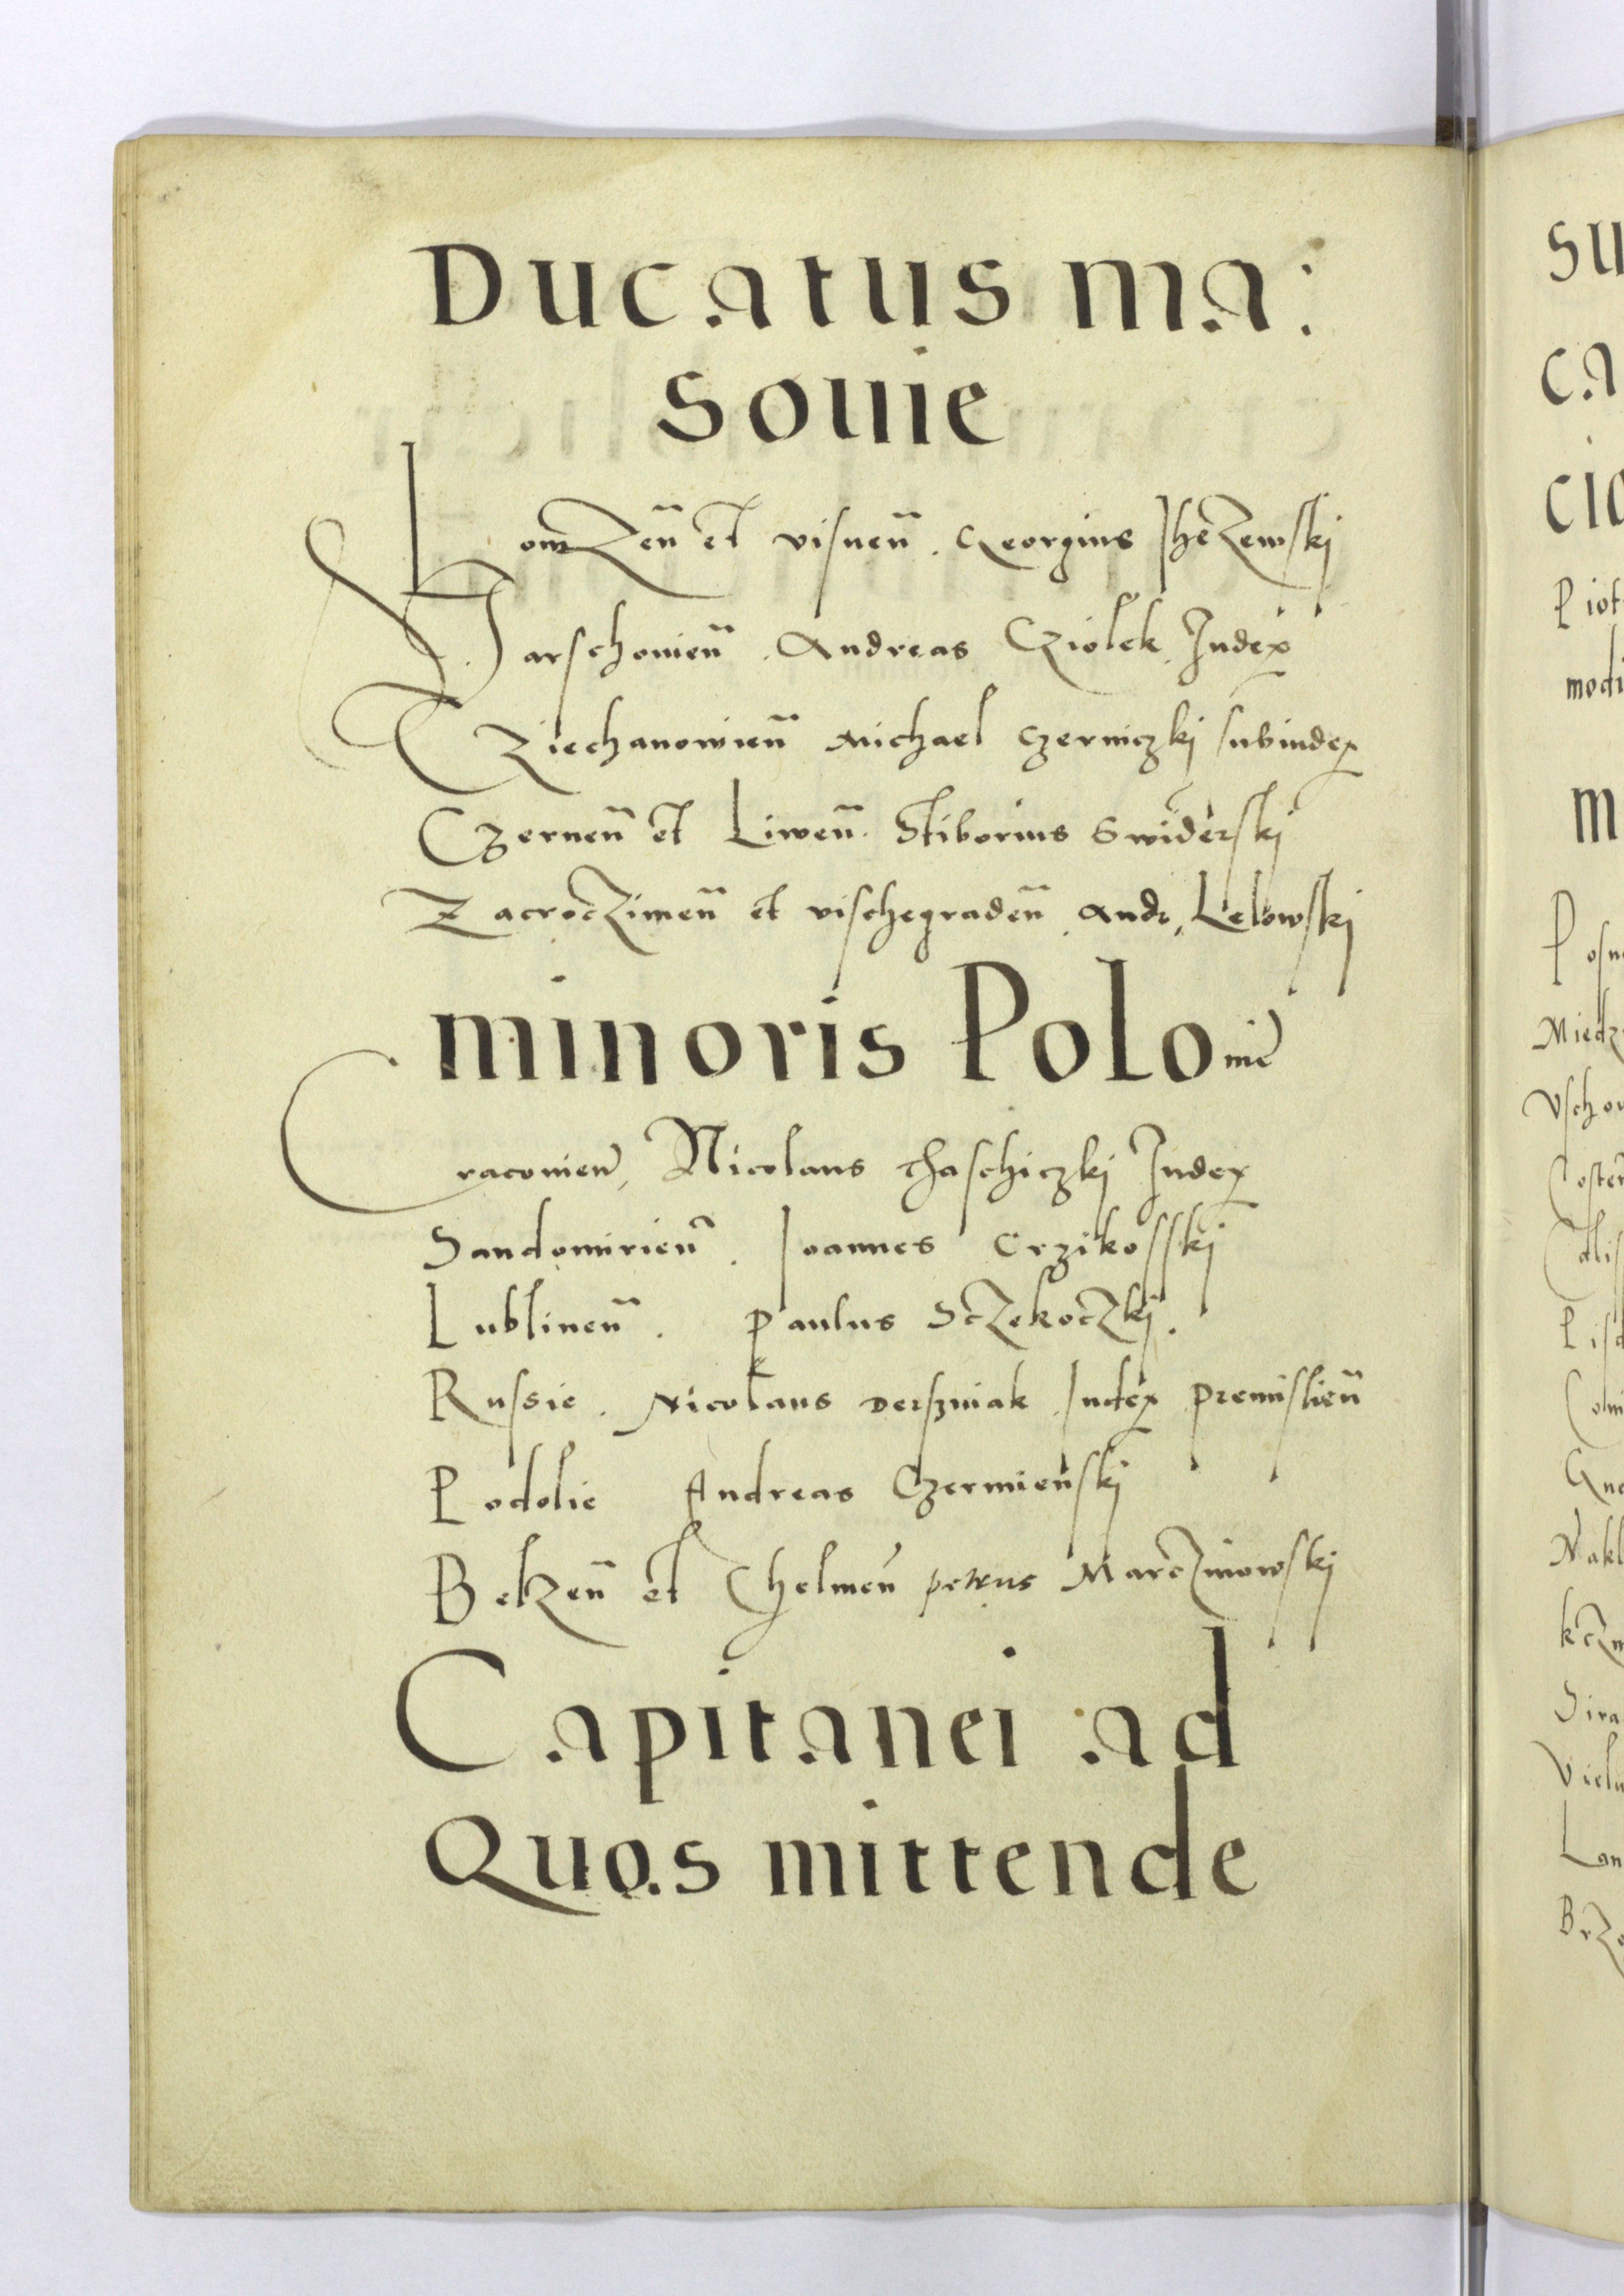 Ducatus ma:
souie
Lomzen̄ et visnen̄. Georgius
Varschouien̄. Andreas Cziolek Iudex
Cziechanowien̄ Michael Czerniczkj subiudex
Czernen̄ et Liwen̄. Stiborius Swiderskj
Zacroczimen̄ et vischegraden̄. Andr. Lelowskj
minoris Polonie
Cracouien, Nicolaus Thaschiczkj Iudex
Sandomirien̄. Ioannes Crzikosskj
Lublinen̄. Paulus Sczekoczkj.
Russie. Nicolaus Derszniak Iudex premislien̄
Podolie Andreas Czermienskj
Belzen̄ et Chelmen̄ petrus Marczinowskj
Capitanei ad
Quos mittende
su
ca
Piot
modi
m
Posn
Miedz
Vschow
Costen
Calis
Sira
Vielu
Lan